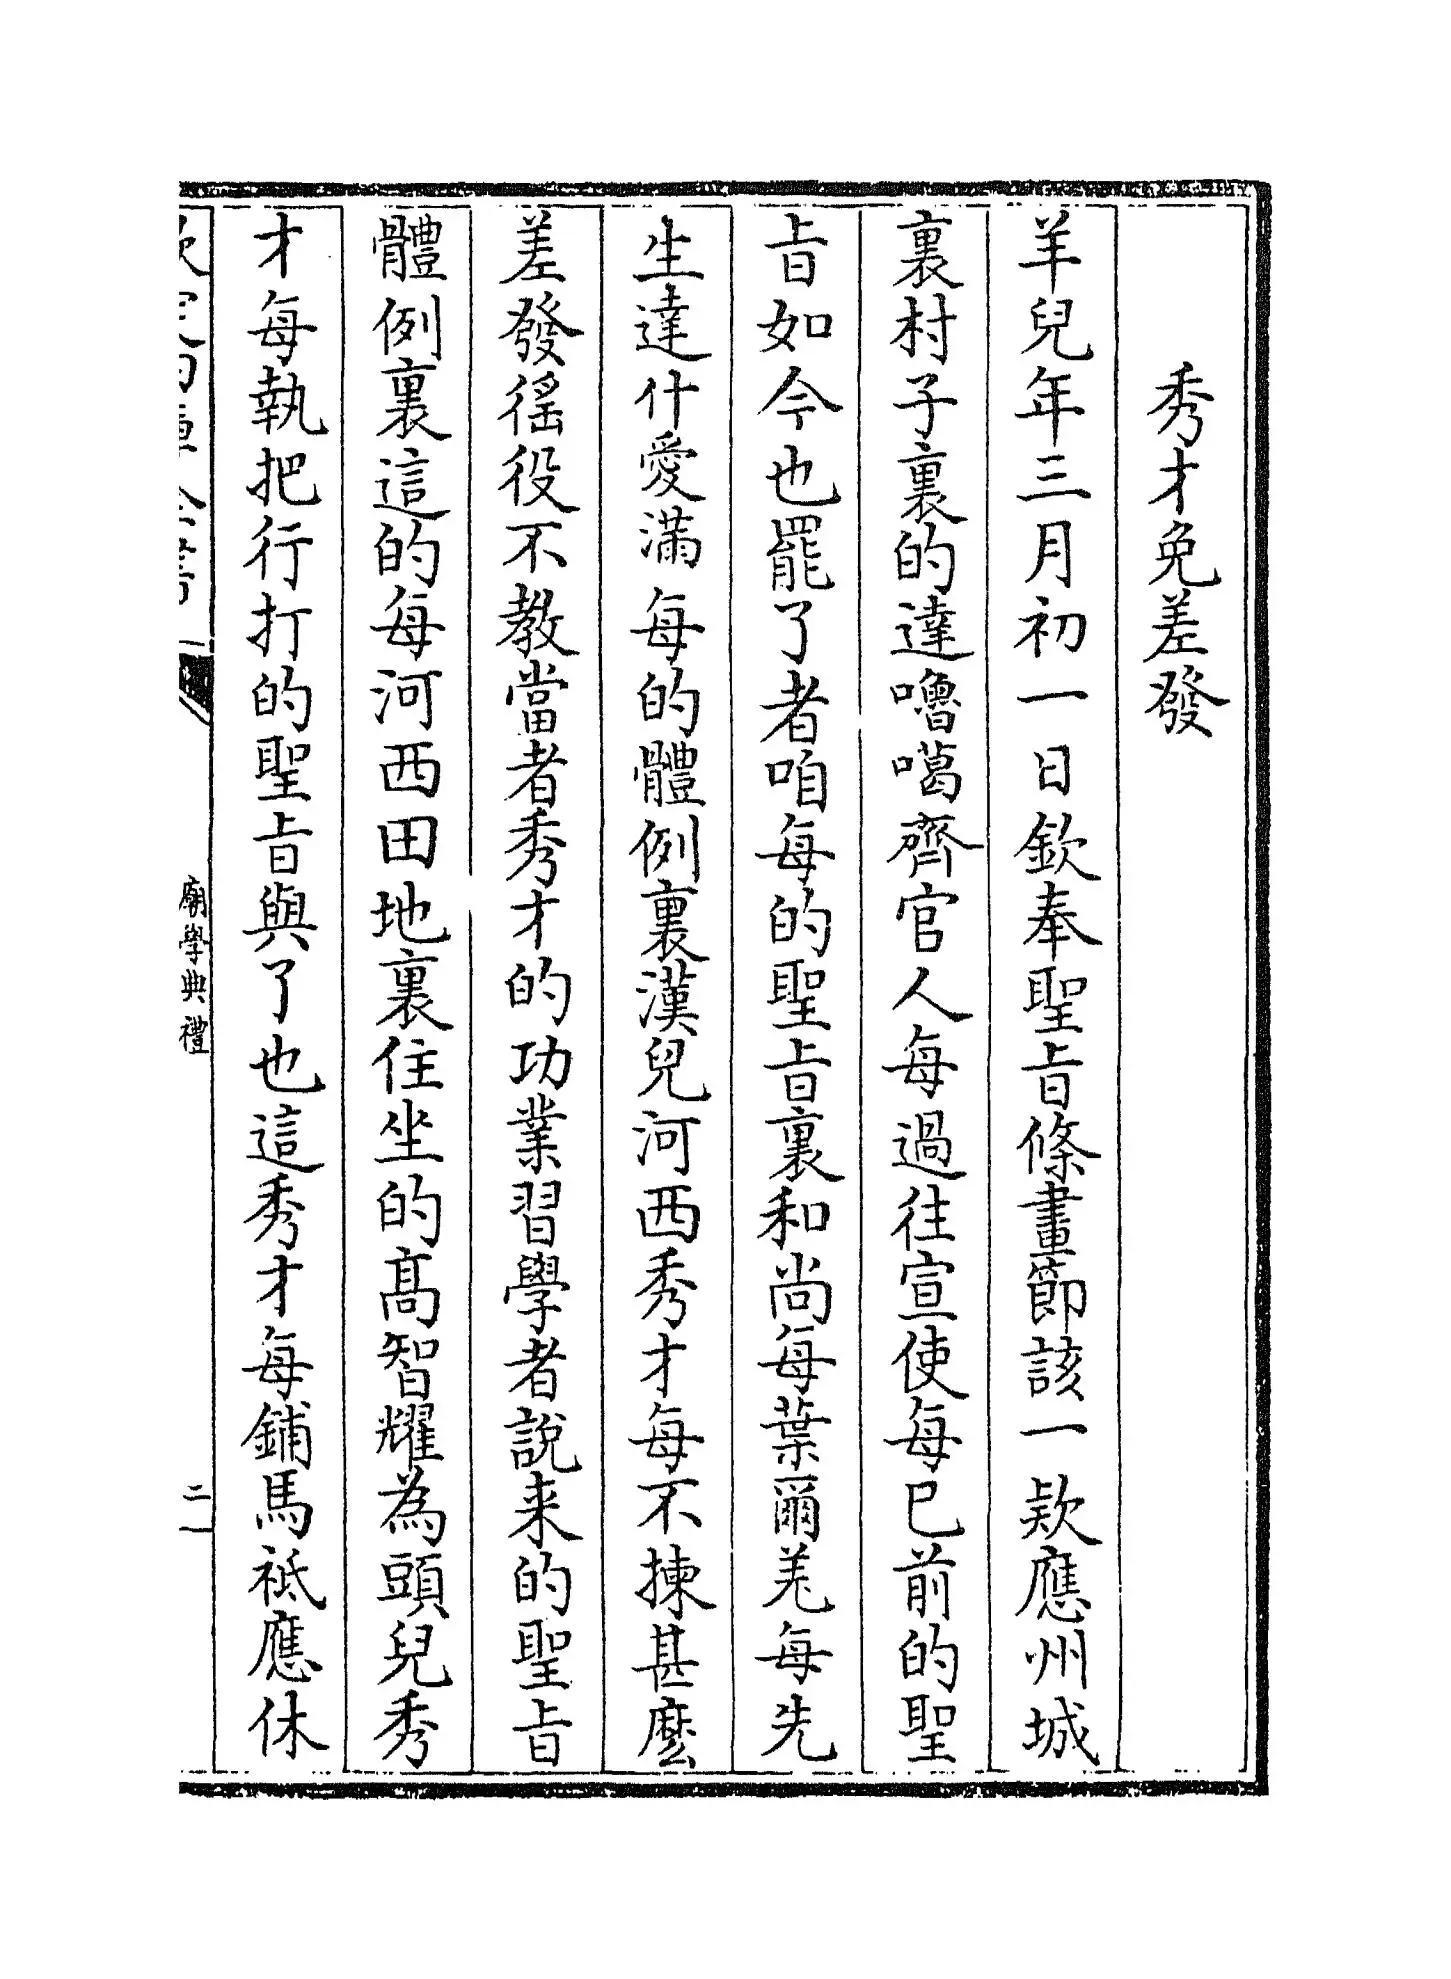 秀才免差發
羊兒年三月初一日欽奉聖旨條畫節該一欵應州城
裏村子裏的達嚕噶齊官人每過往宣使每已前的聖
旨如今也罷了者咱每的聖旨裏和尚每葉爾羌每先
生達什愛滿每的體例裏漢兒河西秀才每不揀甚麽
差發徭役不教當者秀才的功業習學者說来的聖旨
體例裏這的每河西田地裏住坐的髙智耀為頭兒秀
才每執把行打的聖旨與了也這秀才每鋪馬祗應休
欽定四庫全書
廟學典禮
二